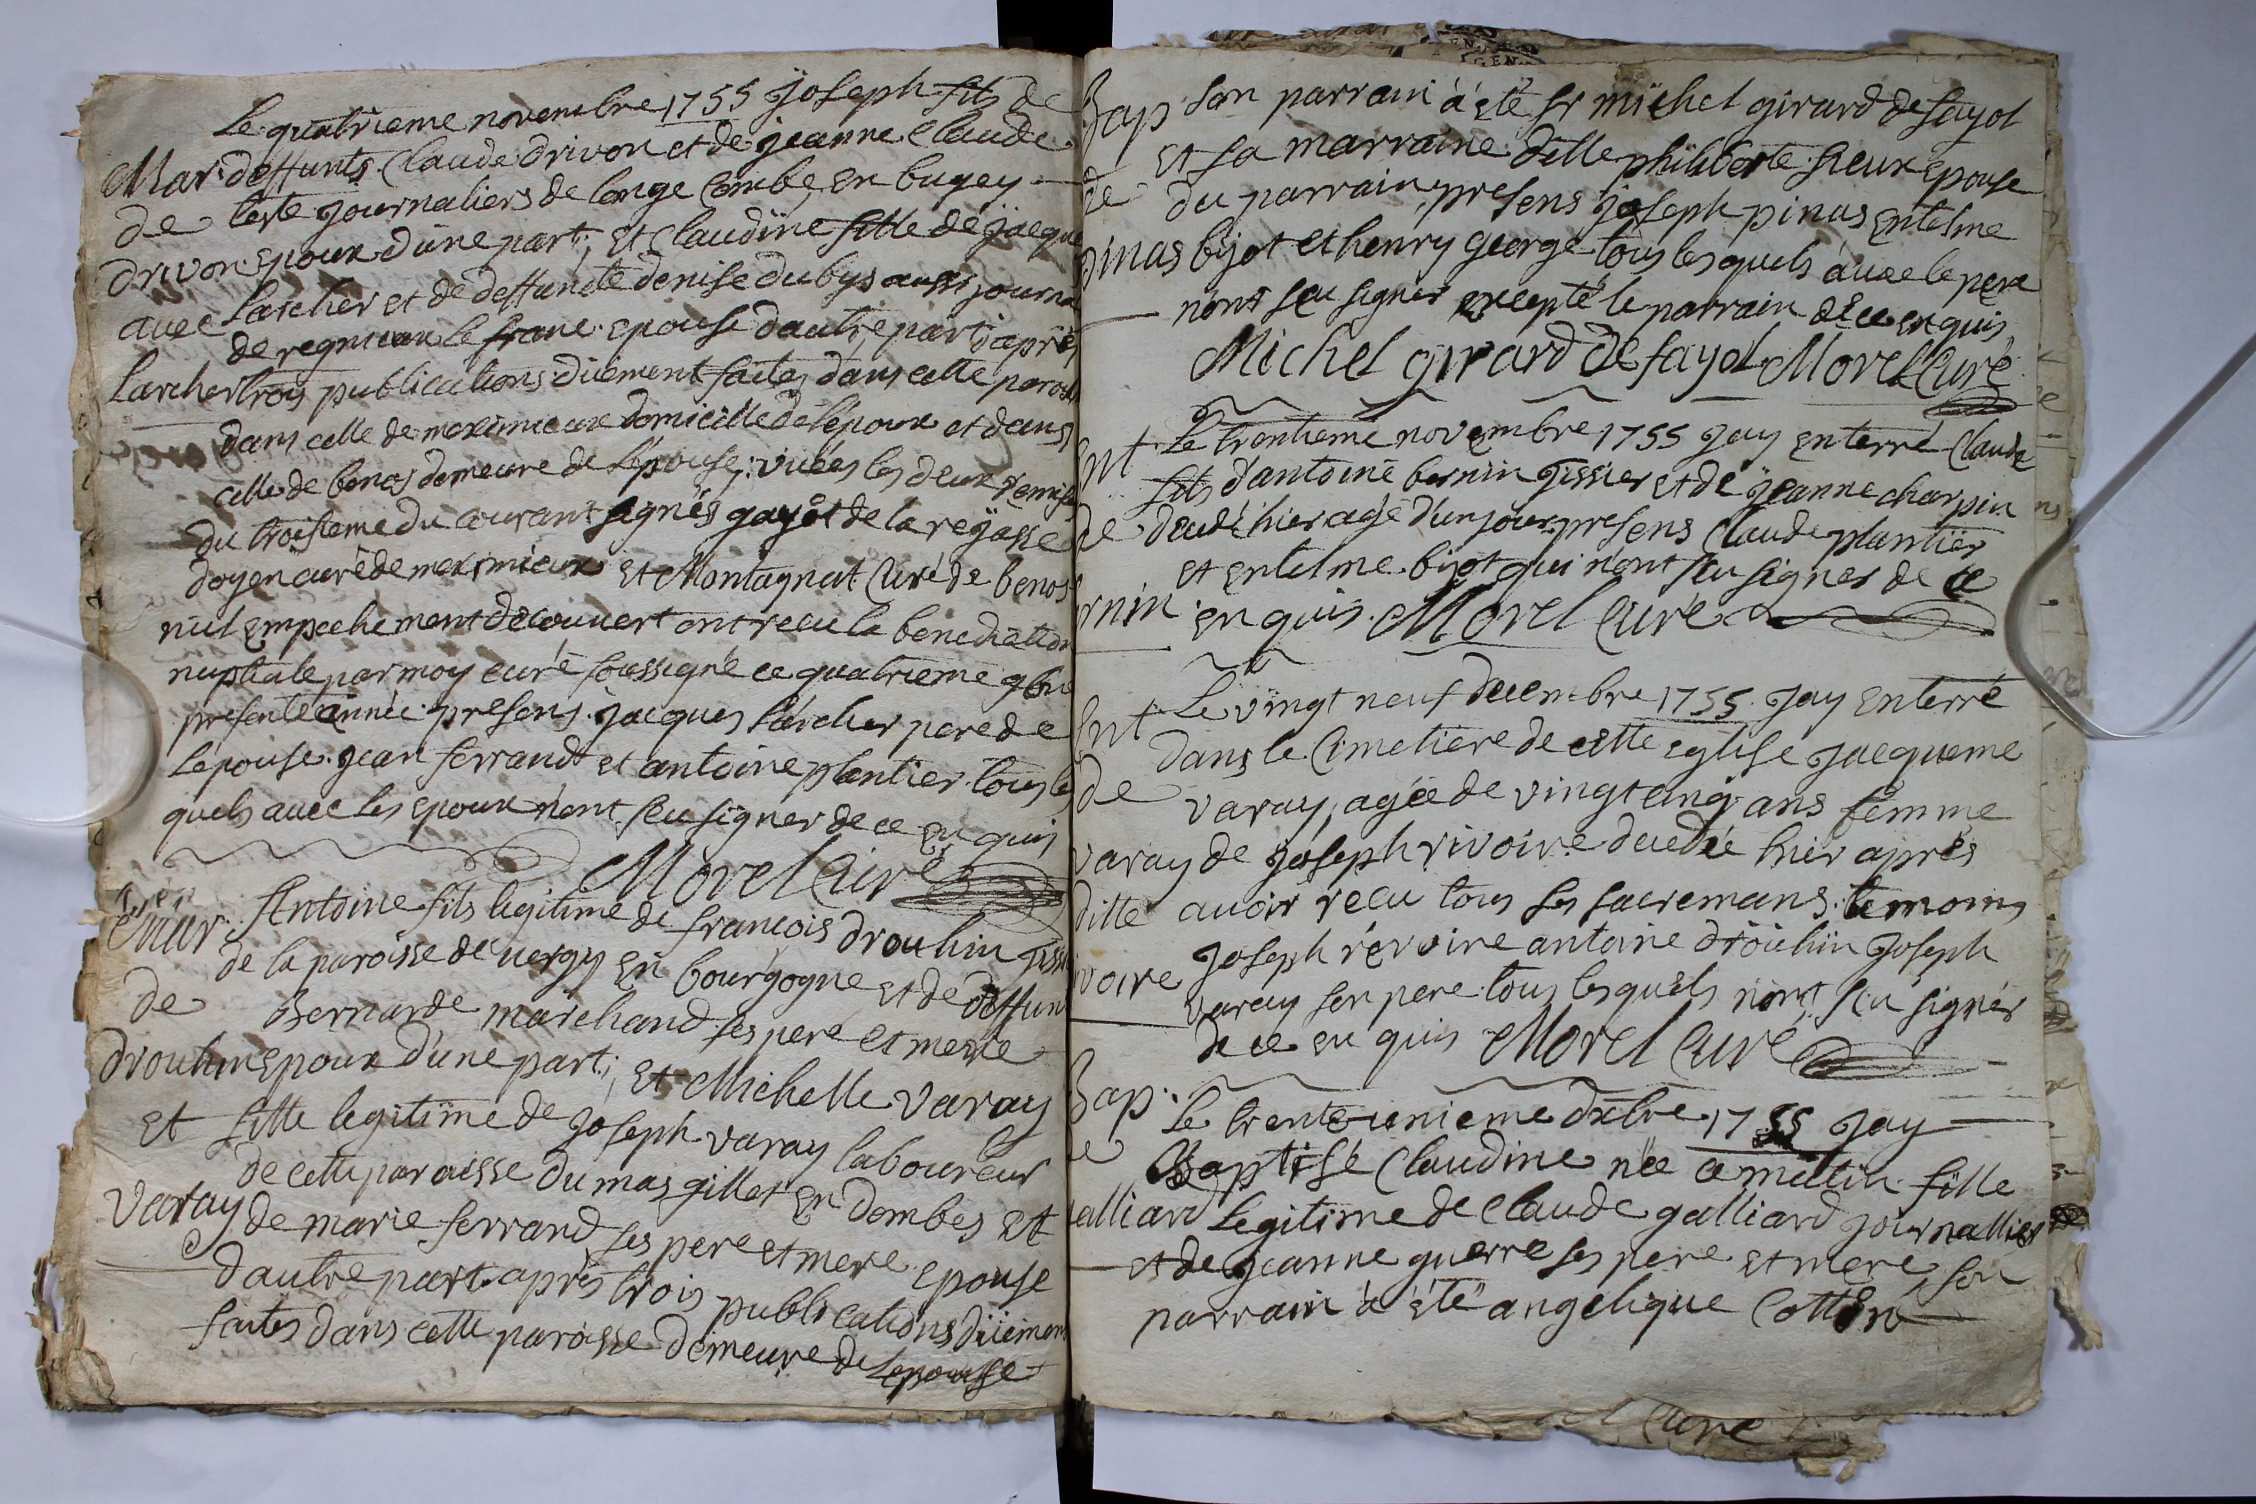 Le quatrieme novembre 1755 joseph fils de
Mar. deffunts Claude drivon et de jeanne Claude
de teste journaliers de longe Combe en bugey
drivon epoux d'une part; et Claudine fille de jacque
avec Larcher et de deffuncte denise dubys aussi journa
de regnieux le franc epouse d'autre part; aprés
Larcher trois publications düement faites dans cette paroiss
dans celle de meximieux domicille de l'époux et dans
celle de benos demeure de l'épouse; vûées les deux remise
du troisieme du courant signés gayot de la rejasse
doyen curé de meximieux et Montagnat Curé de benost
nul empechement decouvert ont recu la benediction
nuptiale par moy curé soussigné ce quatrieme 9bre
presente année. presens jacques Larcher pere de
Lepouse. jean ferrand et antoine plantier tous les
quels avec les epoux n'ont sçu signer de ce en quis
Morel Curé
Mar. Antoine fils legitime de francois drouhin tissi
de la paroisse de vergy en bourgogne et de deffun
de Bernarde marchand ses pere et mere
drouhin epoux d'une part; et Michelle varay
et fille legitime de joseph varay laboureur
de cette paroisse du mas gillet en dombes et
varay de marie ferrand ses pere et mere epouse
d'autre part. aprés trois publications düiement
faites dans cette paroisse demeure de Lepouse
Bap son parrain á été sr michel girard de fayol
et sa marraine delle philiberte sieux epouse
de du parrain, presens joseph pinas entelme
pinas bijot et henry george tous lesquels avec le pere
nont sçu signer excepté le parrain de ce enquis
Michel girard de fayol Morel Curé
Ent Le trentieme novembre 1755 jay enterré Claude
fils d'antoine bernin tissier et de jeanne charpin
de decedé hier agé d'un jour. presens Claude plantier
et entelme bijot qui n'ont sçu signer de ce
rnin en quis. Morel Curé
Ent Le vingt neuf decembre 1755 jay enterré
dans le Cimetiere de cette eglise jacqueme
de varay, agée de vingt cinq ans femme
varay de joseph rivoire decedée hier aprés
ditte avoir recu tous ses sacremans. temoins
joseph révoire antoine drouhin joseph
ivoire varay son pere tous lesquels n'ont sçu signér
de ce en quis Morel Curé
Bap. Le trente unieme dxbre 1755 jay
e Baptisé Claudine née ce matin fille
alliard Legitime de Claude galliard journallier
et de jeanne guerre ses pere et mere, son
parrain á été angelique Cotten
Curé